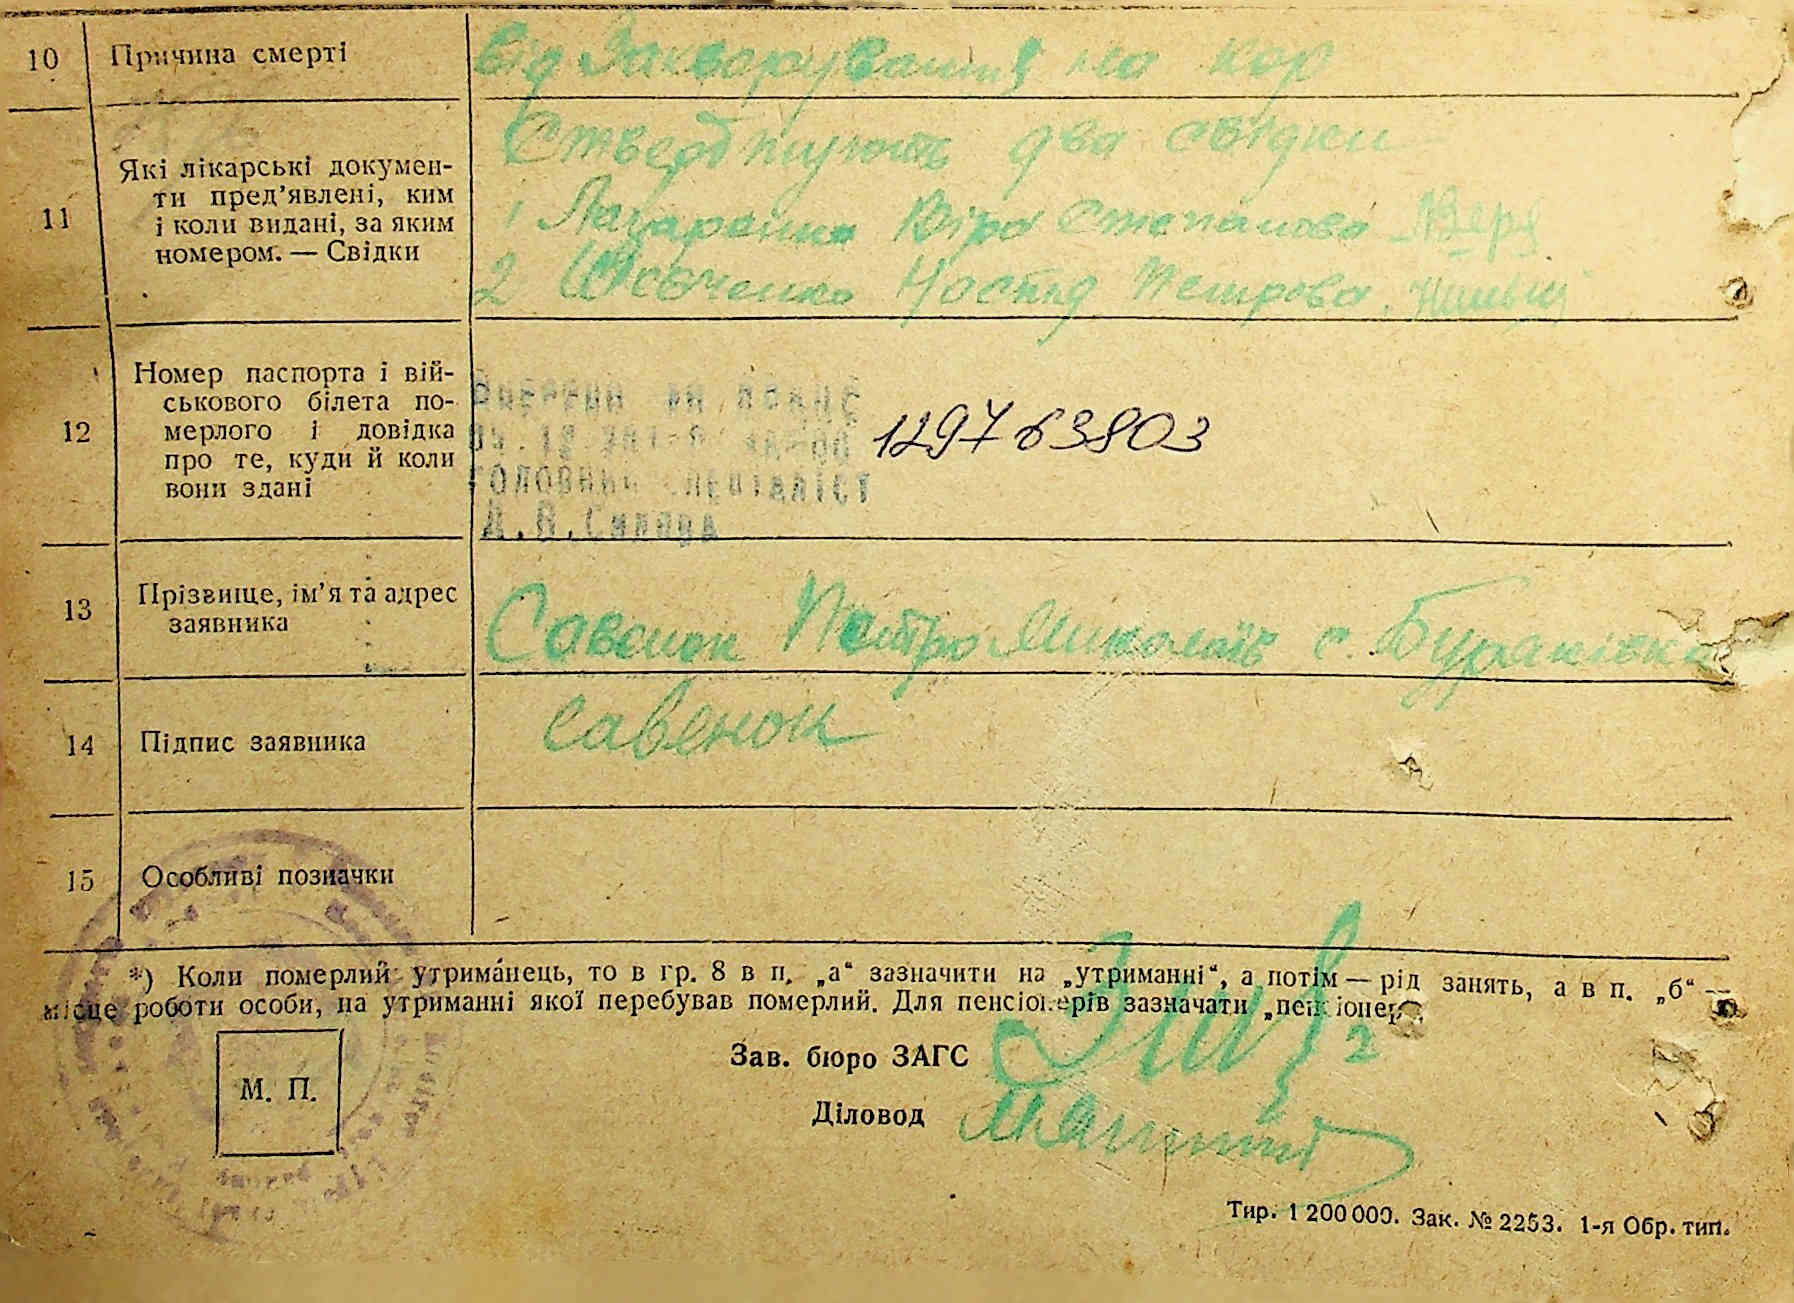 10 Причина смерті від Закворування на кор
Ствердпиують два свідки
11 Які лікарські докумен-
ти пред'явлені, ким
і коли видані, за яким
номером. — Свідки
1 Лазаренко Віра Степанова Вера
2 Шевченко Настя Петрова
12 Номер паспорта і вій-
ськового білета по-
мерлого і довідка
про те, куди й коли
вони здані
головний спеціаліст
129763803
13 Прізвище, ім'я та адрес
заявника
Савенок Петро Миколаїв с. Бураківка
14 Підпис заявника савенок
15 Особливі позначки
*) Коли померлий утриманець, то в гр. 8 в п. „а“ зазначити на „утриманні“, а потім — рід занять, а в п. „б“ —
місце роботи особи, на утриманні якої перебував померлий. Для пенсіонерів зазначати „пенсіонер“.
Зав. бюро ЗАГС
М. П.
Діловод
Тир. 1 200 000. Зак. № 2253. 1-я Обр. тип.